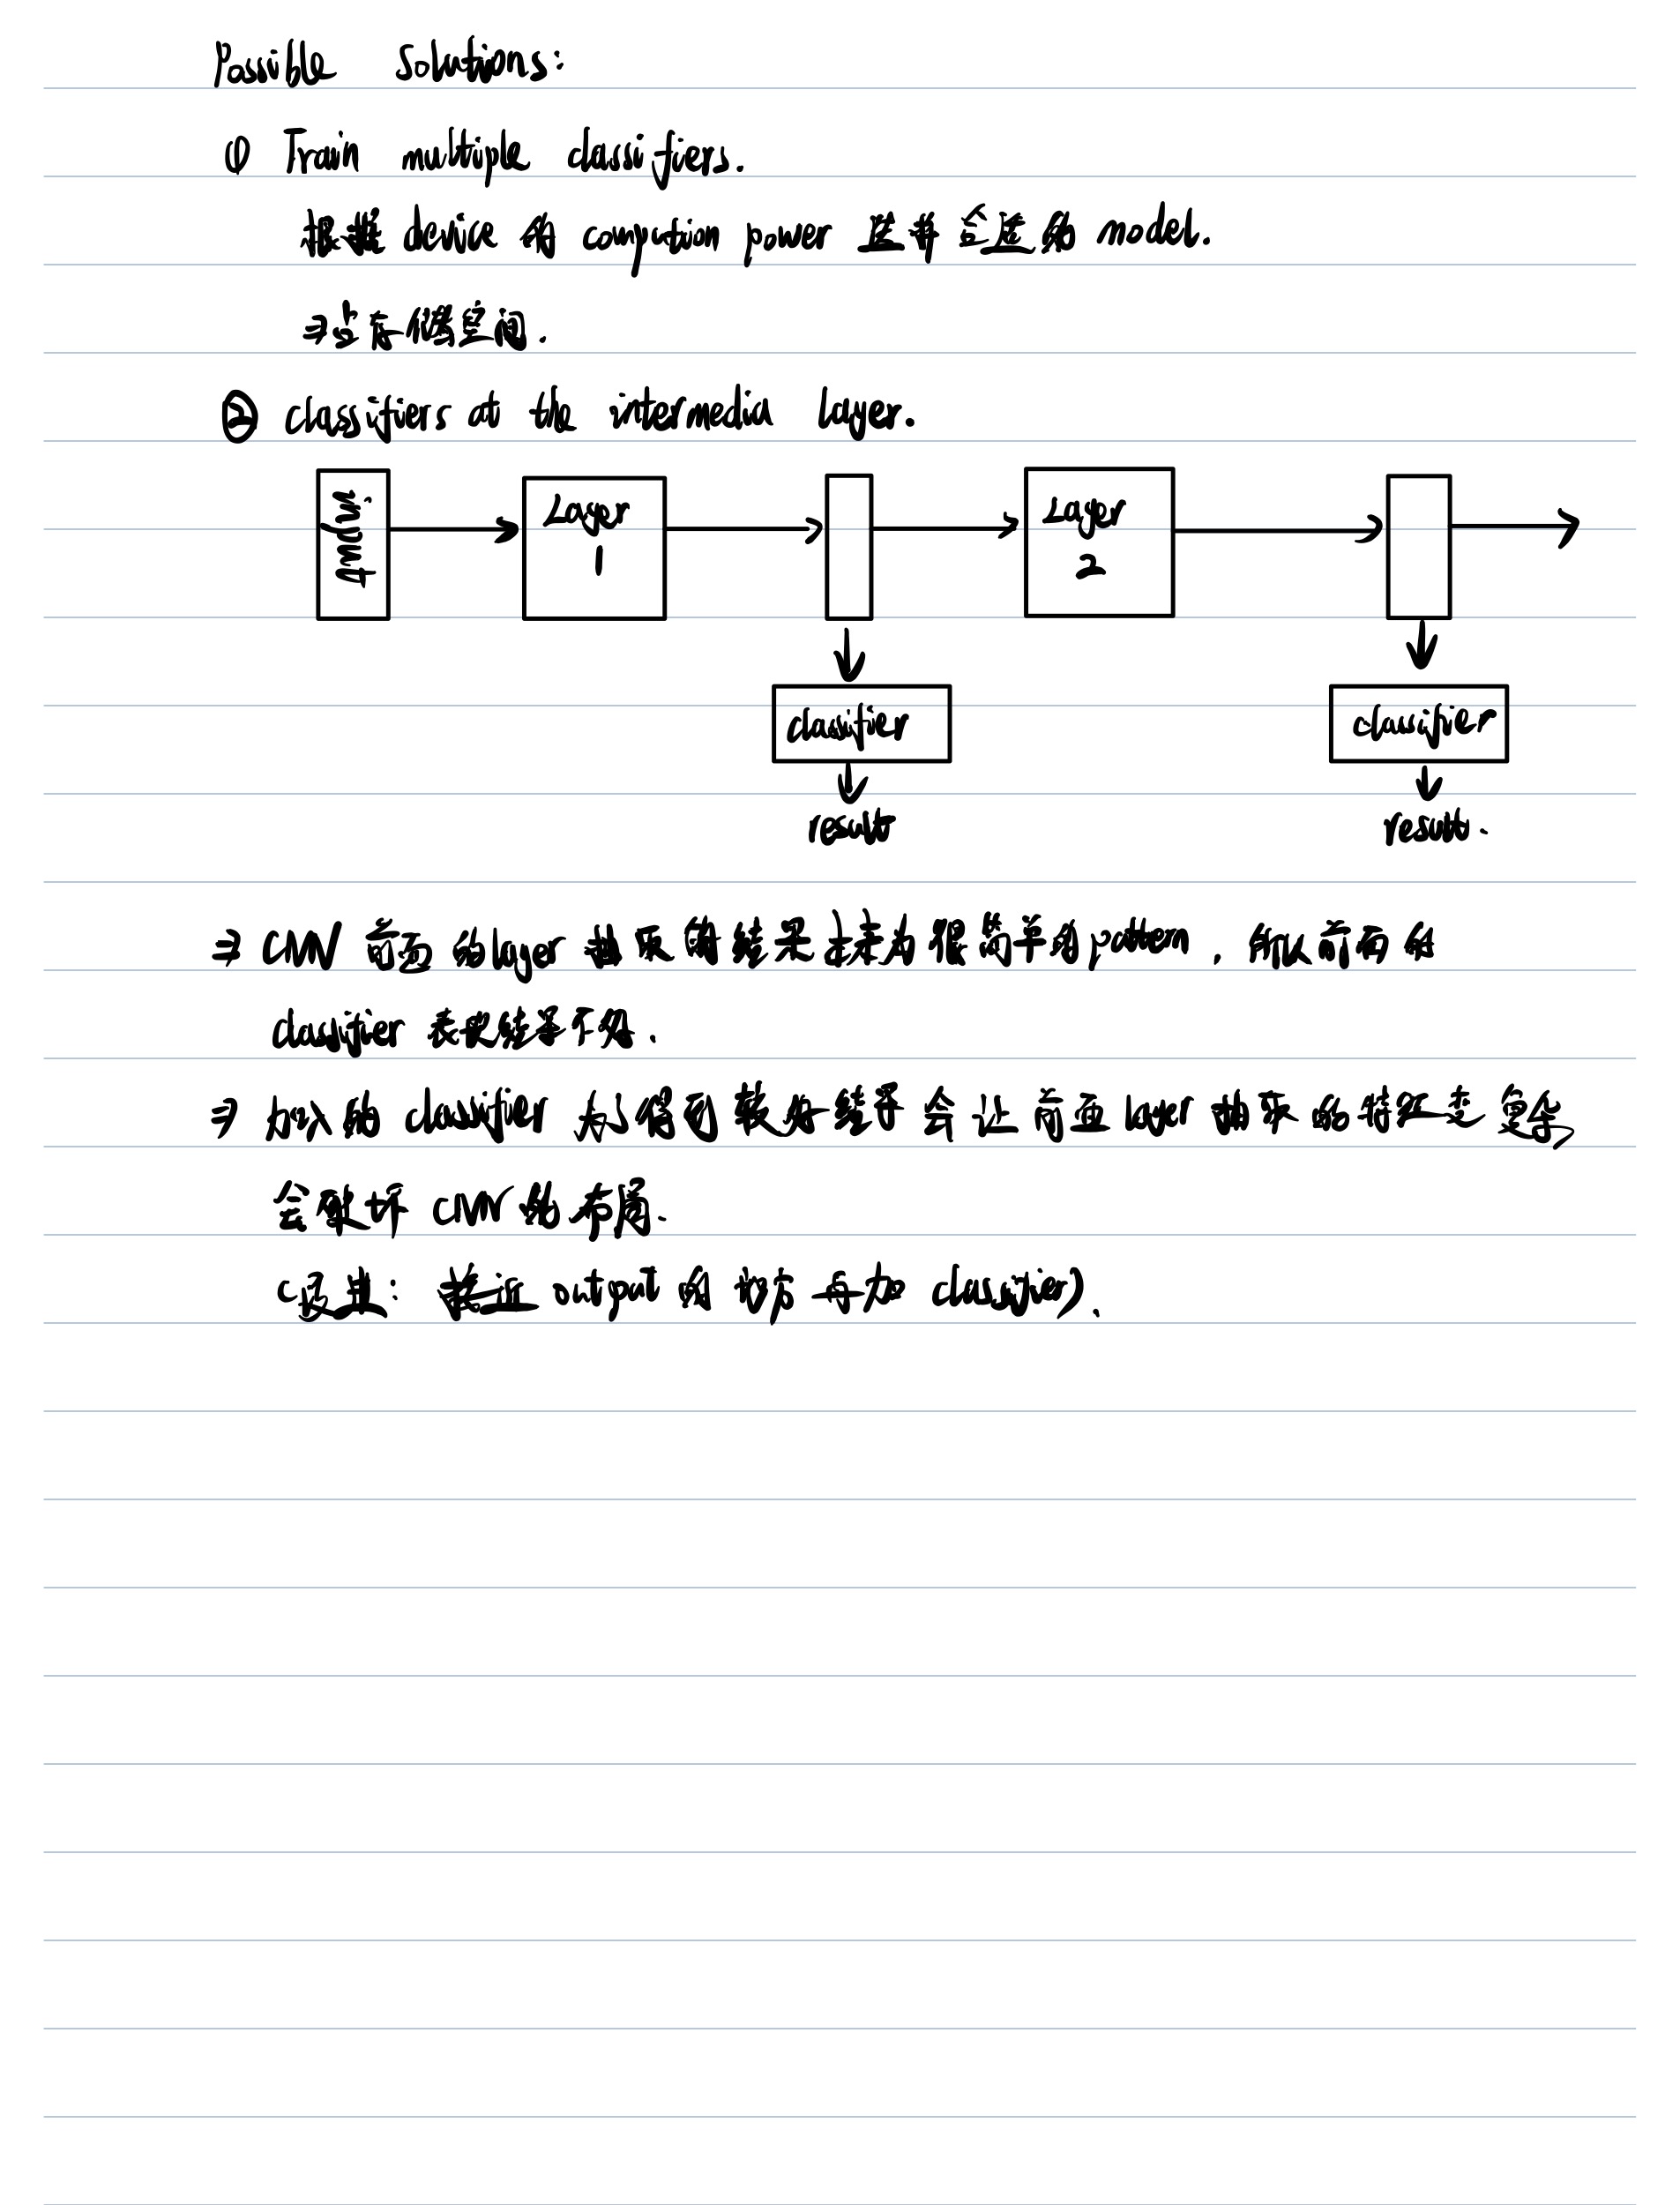 Possible Solutions:
① Train multiple classifiers.
根据 device 的 compution power 选择合适的 model.
⇒占存储空间.
② classifiers at the intermedia layer.
Layer 1
Layer 2
classifier
classifier
result
result.
⇒ CNN 前面的layer 抽取的结果本来为很简单的pattern, 所以前面的
classifier 表现结果不好.
⇒ 加入的 classifier 为了得到较好结果会让前面layer 抽取的特征变复杂
会破坏 CNN 的布局.
(改进: 接近 output 的地方再加 classifier).